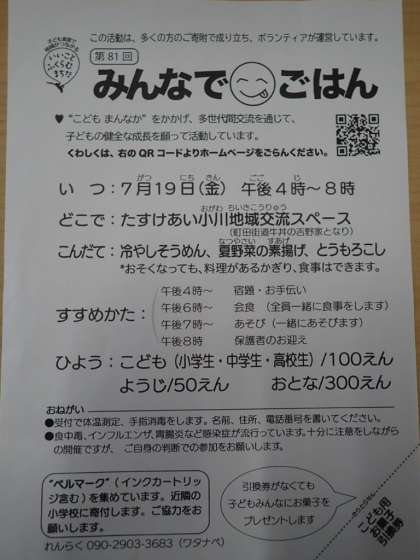 この活動は、多くの方のご寄附で成り立ち、ボランティアが運営しています。
子ども食堂で
地域がつながる
いいこと
ふくらむ
まちだ
第81回
みんなで ごはん
♥“こども まんなか”をかかげ、多世代間交流を通じて、
子どもの健全な成長を願って活動しています。
くわしくは、右のQRコードよりホームページをごらんください。
いつ：7月19日(金) 午後4時～8時
がつ にち きん ごご じ
どこで：たすけあい小川地域交流スペース
おがわ ちいきこうりゅう
(町田街道牛丼の吉野家となり)
こんだて：冷やしそうめん、夏野菜の素揚げ、とうもろこし
なつやさい すあげ
*おそくなっても、料理があるかぎり、食事はできます。
すすめかた：
午後4時～ 宿題・お手伝い
午後6時～ 会食 (全員一緒に食事をします)
午後7時～ あそび (一緒にあそびます)
午後8時 保護者のお迎え
ひよう：こども (小学生・中学生・高校生) /100えん
ようじ/50えん おとな/300えん
おねがい
●受付で体温測定、手指消毒をします。名前、住所、電話番号を書いてください。
●食中毒、インフルエンザ、胃腸炎など感染症が流行っています。十分に注意をしながら
の開催ですが、ご自身の判断での参加をお願いします。
“ベルマーク”(インクカートリッ
ジ含む)を集めています。近隣の
小学校に寄付します。ご協力をお
願いします。
引換券がなくても
子どもみんなにお菓子を
プレゼントします
れんらく 090-2903-3683 (ワタナベ)